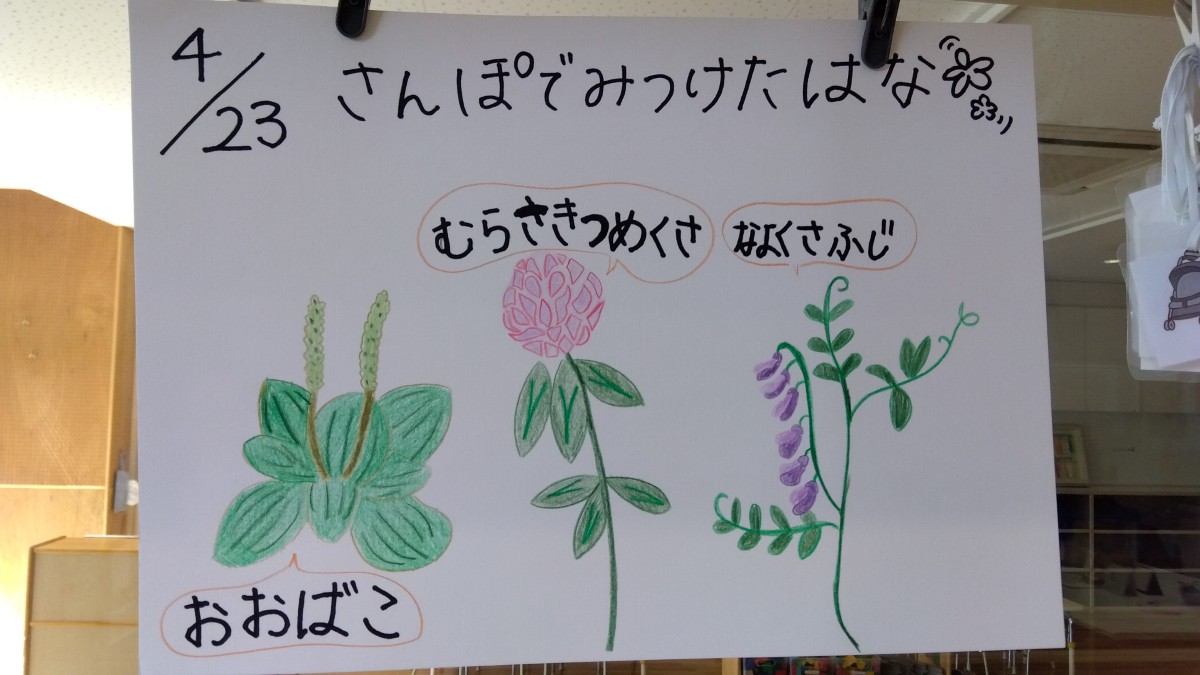 4/23 さんぽでみつけたはな
むらさきつめくさ
なよくさふじ
おおばこ